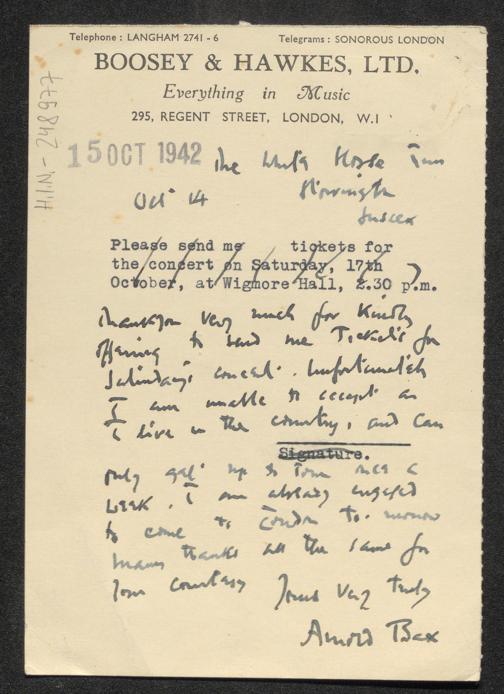 Telephone : LANGHAM 2741 - 6 Telegrams : SONOROUS LONDON
BOOSEY & HAWKES, LTD.
Everything in Music
295, REGENT STREET, LONDON, W.1
15 OCT 1942 The White Horse Inn
Storrington
Oct 14
Sussex
Please send me tickets for
the concert on Saturday, 17th
October, at Wigmore Hall, 2.30 p.m.
Thank you very much for kindly
offering to send me Tickets for
Saturday's concert. Unfortunately
I am unable to accept as
I live in the country, and can
Signature.
only get up to Town once a
week. I am already engaged
to come to London to-morrow
Many thanks all the same for
your courtesy Yours very truly
Arnold Bax